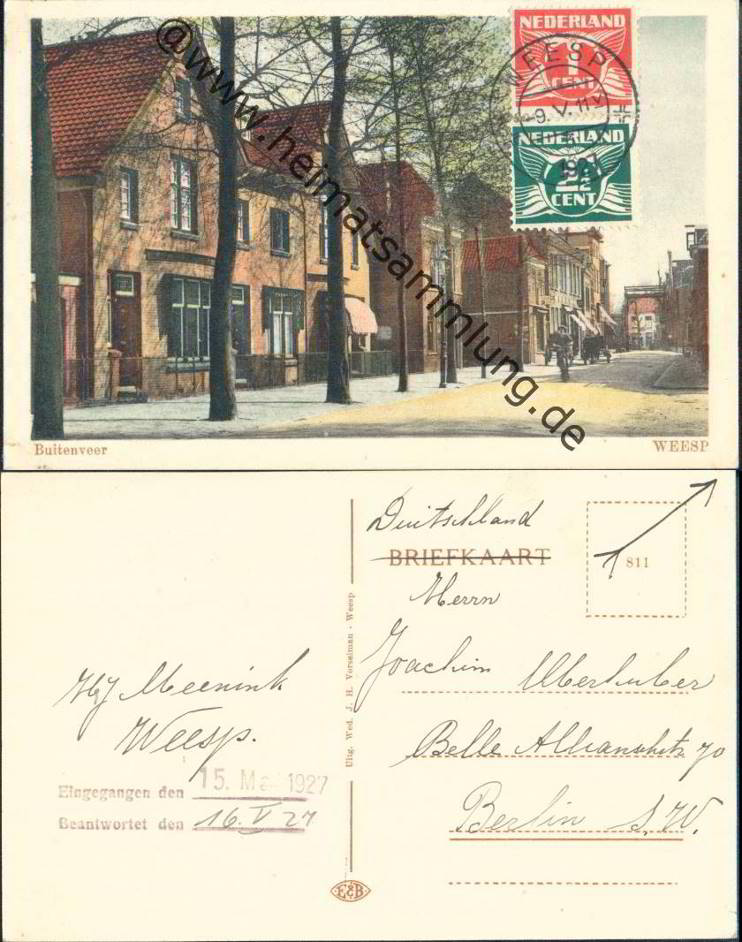 NEDERLAND
1
CENT
WEESP
9. V. 11
NEDERLAND
2½
CENT
@www.heimatsammlung.de
Buitenveer
WEESP
Deutschland
BRIEFKAART
811
Herrn
Joachim
Belle 70
Berlin S.W.
HJ Meenink
Weesp.
Eingegangen den 15. Mai 1927
Beantwortet den 16. V 27
Uitg. Wed. J. H. Vorselman - Weesp
E&B.